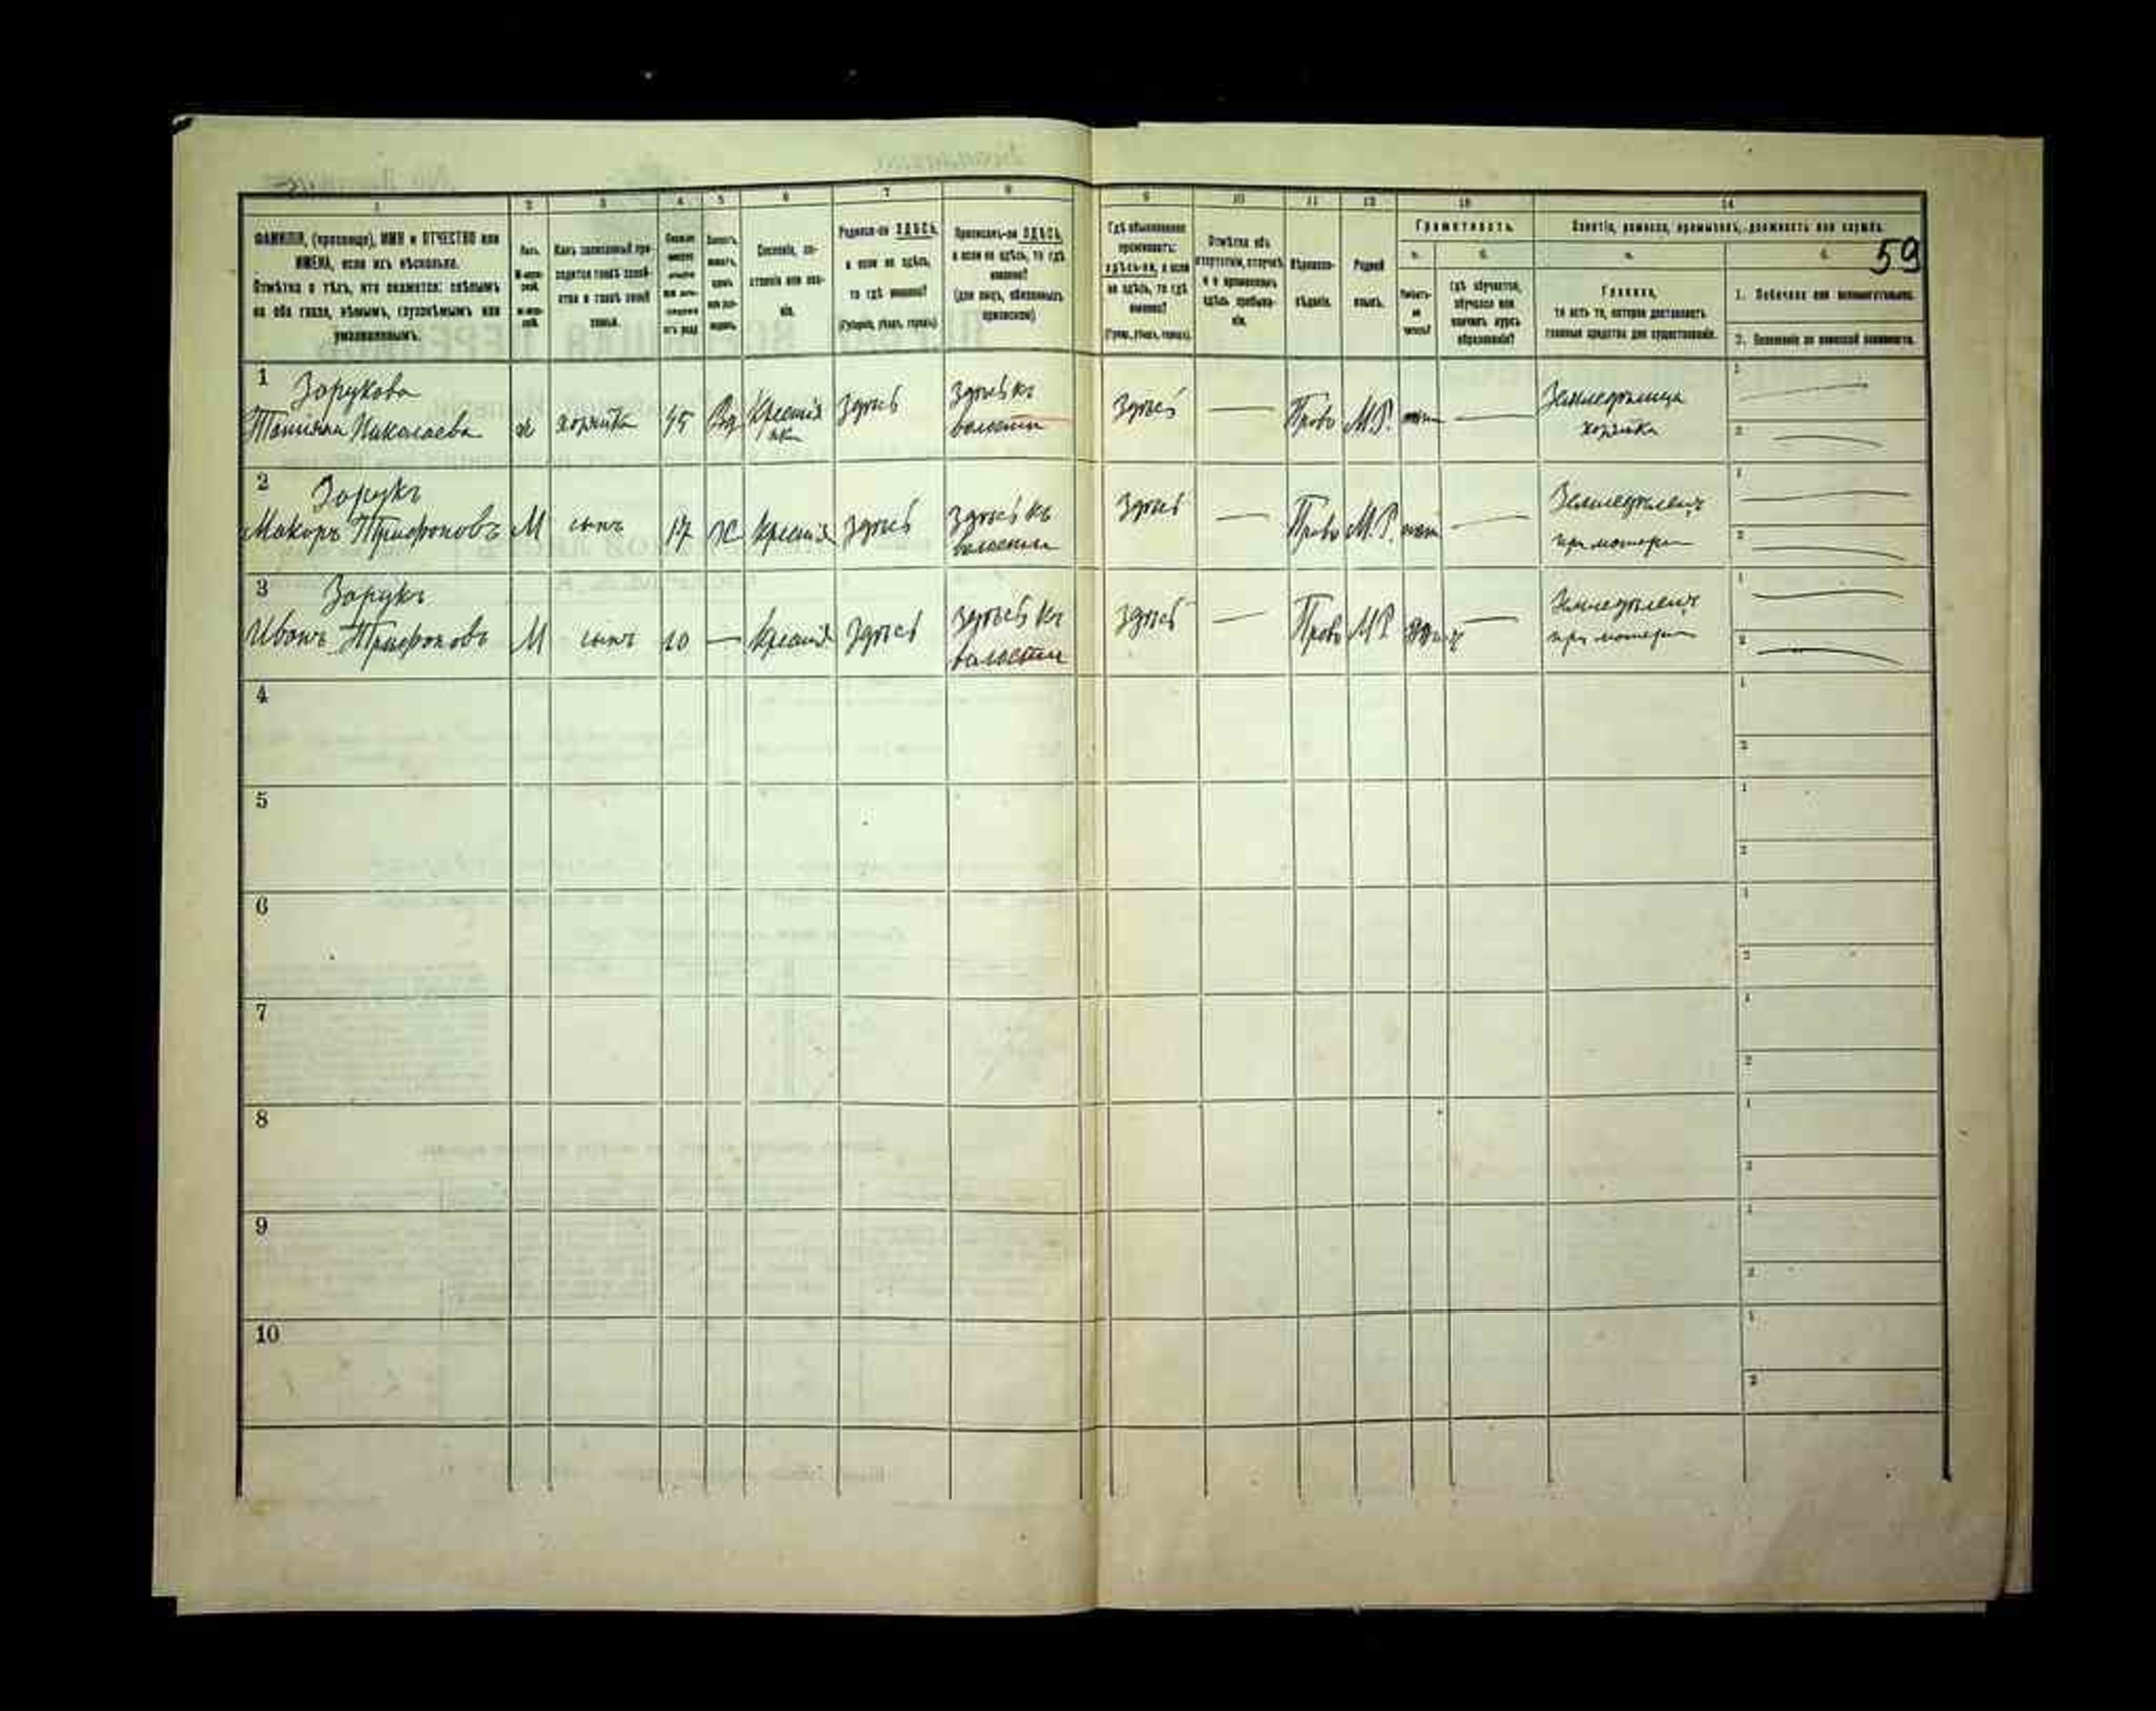 59
1 2 3 4 5 6 7 8 9 10 11 12 13 14
ФАМИЛІЯ, (прозвище), ИМЯ и ОТЧЕСТВО или
ИМЕНА, если ихъ нѣсколько.
Отмѣтка о тѣхъ, кто окажется: слѣпымъ
на оба глаза, нѣмымъ, глухонѣмымъ или
умалишеннымъ.
Полъ.
Какъ записанный при-
ходится главѣ хозяй-
ства и главѣ своей
семьи.
Сословіе, со-
стояніе или зва-
ніе.
Родился-ли ЗДѢСЬ,
а если не здѣсь,
то гдѣ именно?
(Губернія, уѣздъ, городъ)
Приписанъ-ли ЗДѢСЬ,
а если не здѣсь, то гдѣ
именно?
(для лицъ, обязанныхъ
припискою)
Гдѣ обыкновенно
проживаетъ:
здѣсь-ли, а если
не здѣсь, то гдѣ
именно?
(Губер., уѣздъ, городъ).
Отмѣтка объ
отсутствіи, отлучкѣ
и о временномъ
здѣсь пребыва-
ніи.
Вѣроиспо-
вѣданіе.
Родной
языкъ.
Грамотность.
а. б.
Умѣетъ-
ли
читать?
Гдѣ обучается,
обучался или
кончилъ курсъ
образованія?
Занятіе, ремесло, промыселъ, должность или служба.
а. б.
Главное,
то есть то, которое доставляетъ
главныя средства для существованія.
1. Побочное или вспомогательное.
2. Положеніе по воинской повинности.
1 Зарукова здѣсь къ Земледѣлица
Татіяна Николаева ж хозяйка 45 Вд Крестья здѣсь волости здѣсь — Право М.Р. — хозяйка
нка
2 Зарукъ Земледѣлецъ
Макаръ Трифоновъ М сынъ 17 Х крестья здѣсь здѣсь къ волости здѣсь — Право М.Р. — при матери
3 Зарукъ Земледѣлецъ
Иванъ Трифоновъ М сынъ 10 — крестья здѣсь здѣсь къ волости здѣсь — Право М.Р. — при матери
4
5
6
7
8
9
10